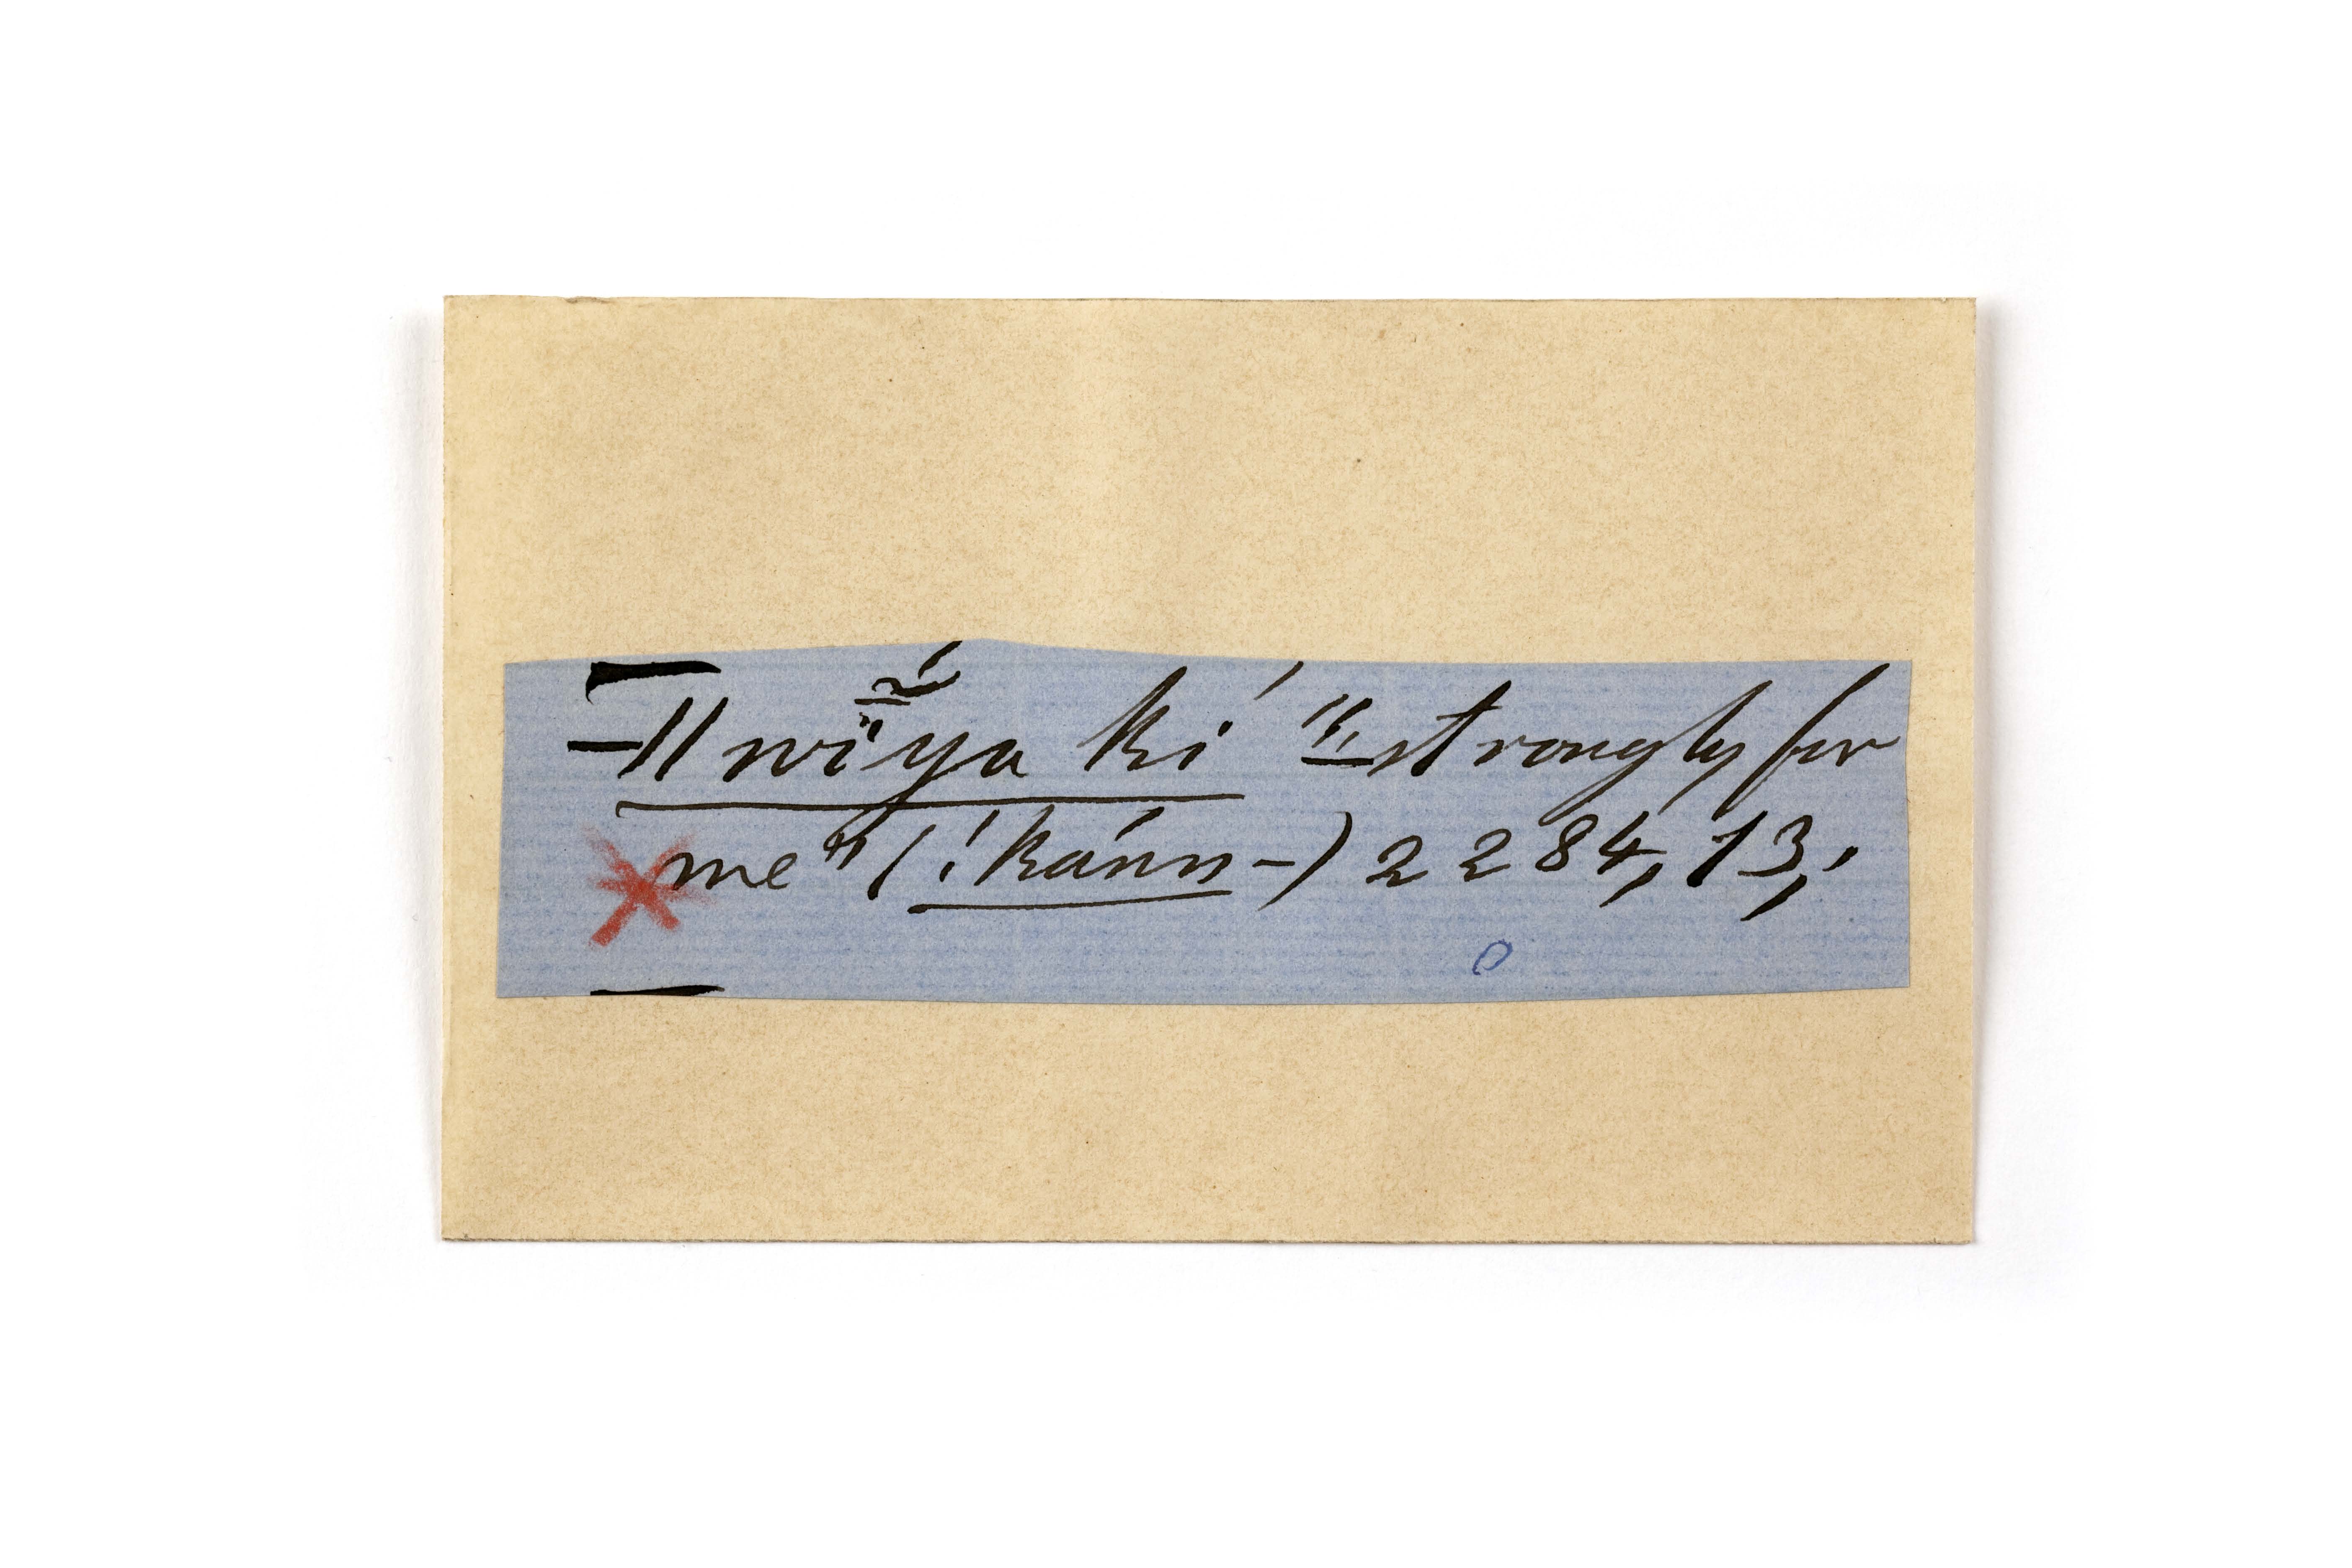 –ǁwī̃ya ki "strongly for
me" (!kánn–) 2284, 13,.